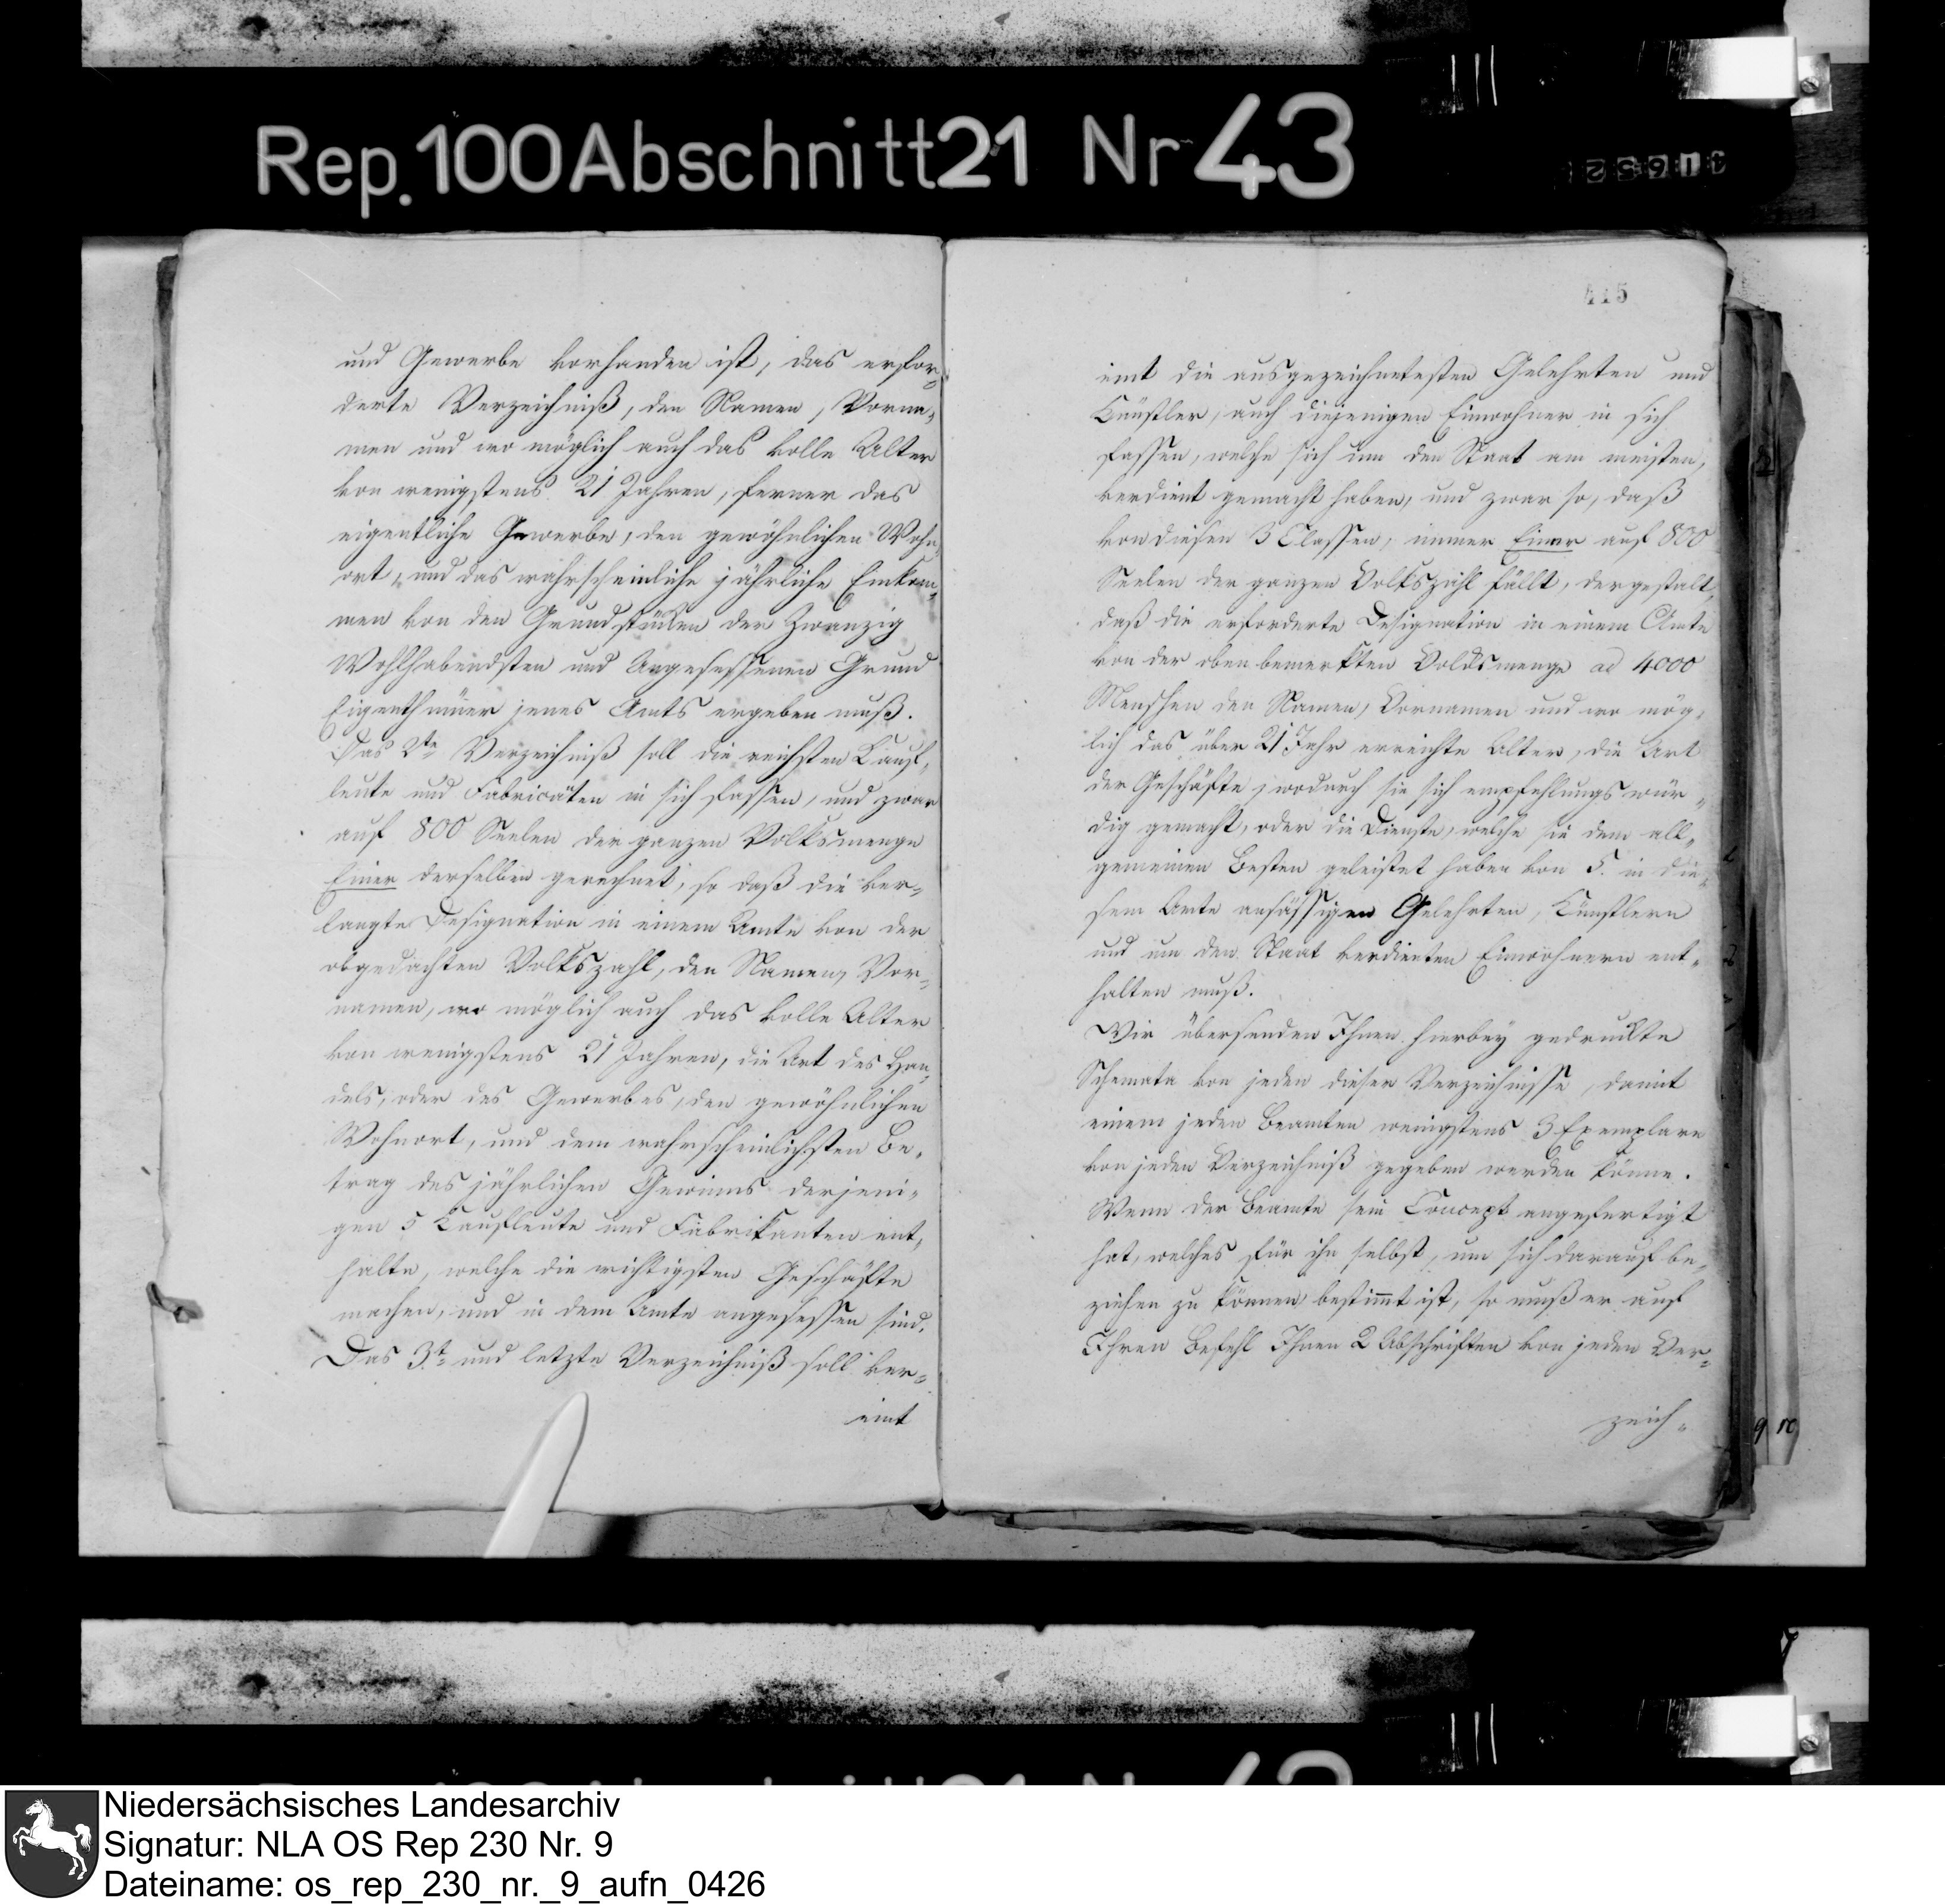 Rep. 100 Abschnitt 21 Nr 43
und Gewerbe vorhanden ist, das erfor-
derte Verzeichniß, den Namen, Vorna-
men und wo möglich auch das volle Alter
von wenigstens 21 Jahren, ferner das
eigentliche Gewerbe, den gewöhnlichen Wohn-
ort, und das wahrscheinliche jährliche Einkom-
men von den Grundstücken der Zwanzig
Wohlhabendsten und Angesessenen Grund
Eigenthümer jenes Amts ergeben muß.
Das 2te Verzeichniß soll die reichsten Kauf-
leute und Fabricäten in sich fassen, und zwar
auf 800 Seelen der ganzen Volksmenge
Einer derselben gerechnet, so daß die ver-
langte Designation in einem Amte von der
obgedachten Volkszahl, den Namen, Vor-
namen, wo möglich auch das volle Alter
von wenigstens 21 Jahren, die Art des Han-
dels, oder des Gewerbes, den gewöhnlichen
Wohnort, und dem wahrscheinlichsten Be-
trag des jährlichen Gewinns derjeni-
gen 5 Kaufleute und Fabrikanten ent-
halte, welche die wichtigsten Geschäfte
machen, und in dem Amte angesessen sind.
Das 3te und letzte Verzeichniß soll ver-
eint
415
eint die ausgezeichnetesten Gelehrten und
Künstler, auch diejenigen Einwohner in sich
fassen, welche sich um den Staat am meisten,
verdient gemacht haben, und zwar so, daß
von diesen 3 Classen, immer Einer auf 800
Seelen der ganzen Volkszahl fällt, dergestalt,
daß die erforderte Designation in einem Amte
von der oben bemerkten Volksmenge ad 4000
Menschen den Namen, Vornamen und wo mög-
lich das über 21 Jahr erreichte Alter, die Art
der Geschäfte, wodurch sie sich empfehlungs wür-
dig gemacht, oder die Dienste, welche sie dem all-
gemeinen Besten geleistet haben von 5. in die-
sem Amte ansässigen Gelehrten, Künstlern
und um den Staat verdienten Einwohnern ent-
halten muß.
Wir übersenden Ihnen hierbey gedruckte
Schemata von jeden dieser Verzeichnisse, damit
einem jeden Beamten wenigstens 3 Exemplare
von jeden Verzeichniß gegeben werden könne.
Wenn der Beamte sein Concept angefertigt
hat, welches für ihn selbst, um sich darauf be-
ziehen zu können bestimmt ist, so muß er auf
Ihren Befehl Ihnen 2 Abschriften von jeden Ver-
zeich-
9 10
Niedersächsisches Landesarchiv
Signatur: NLA OS Rep 230 Nr. 9
Dateiname: os_rep_230_nr._9_aufn_0426